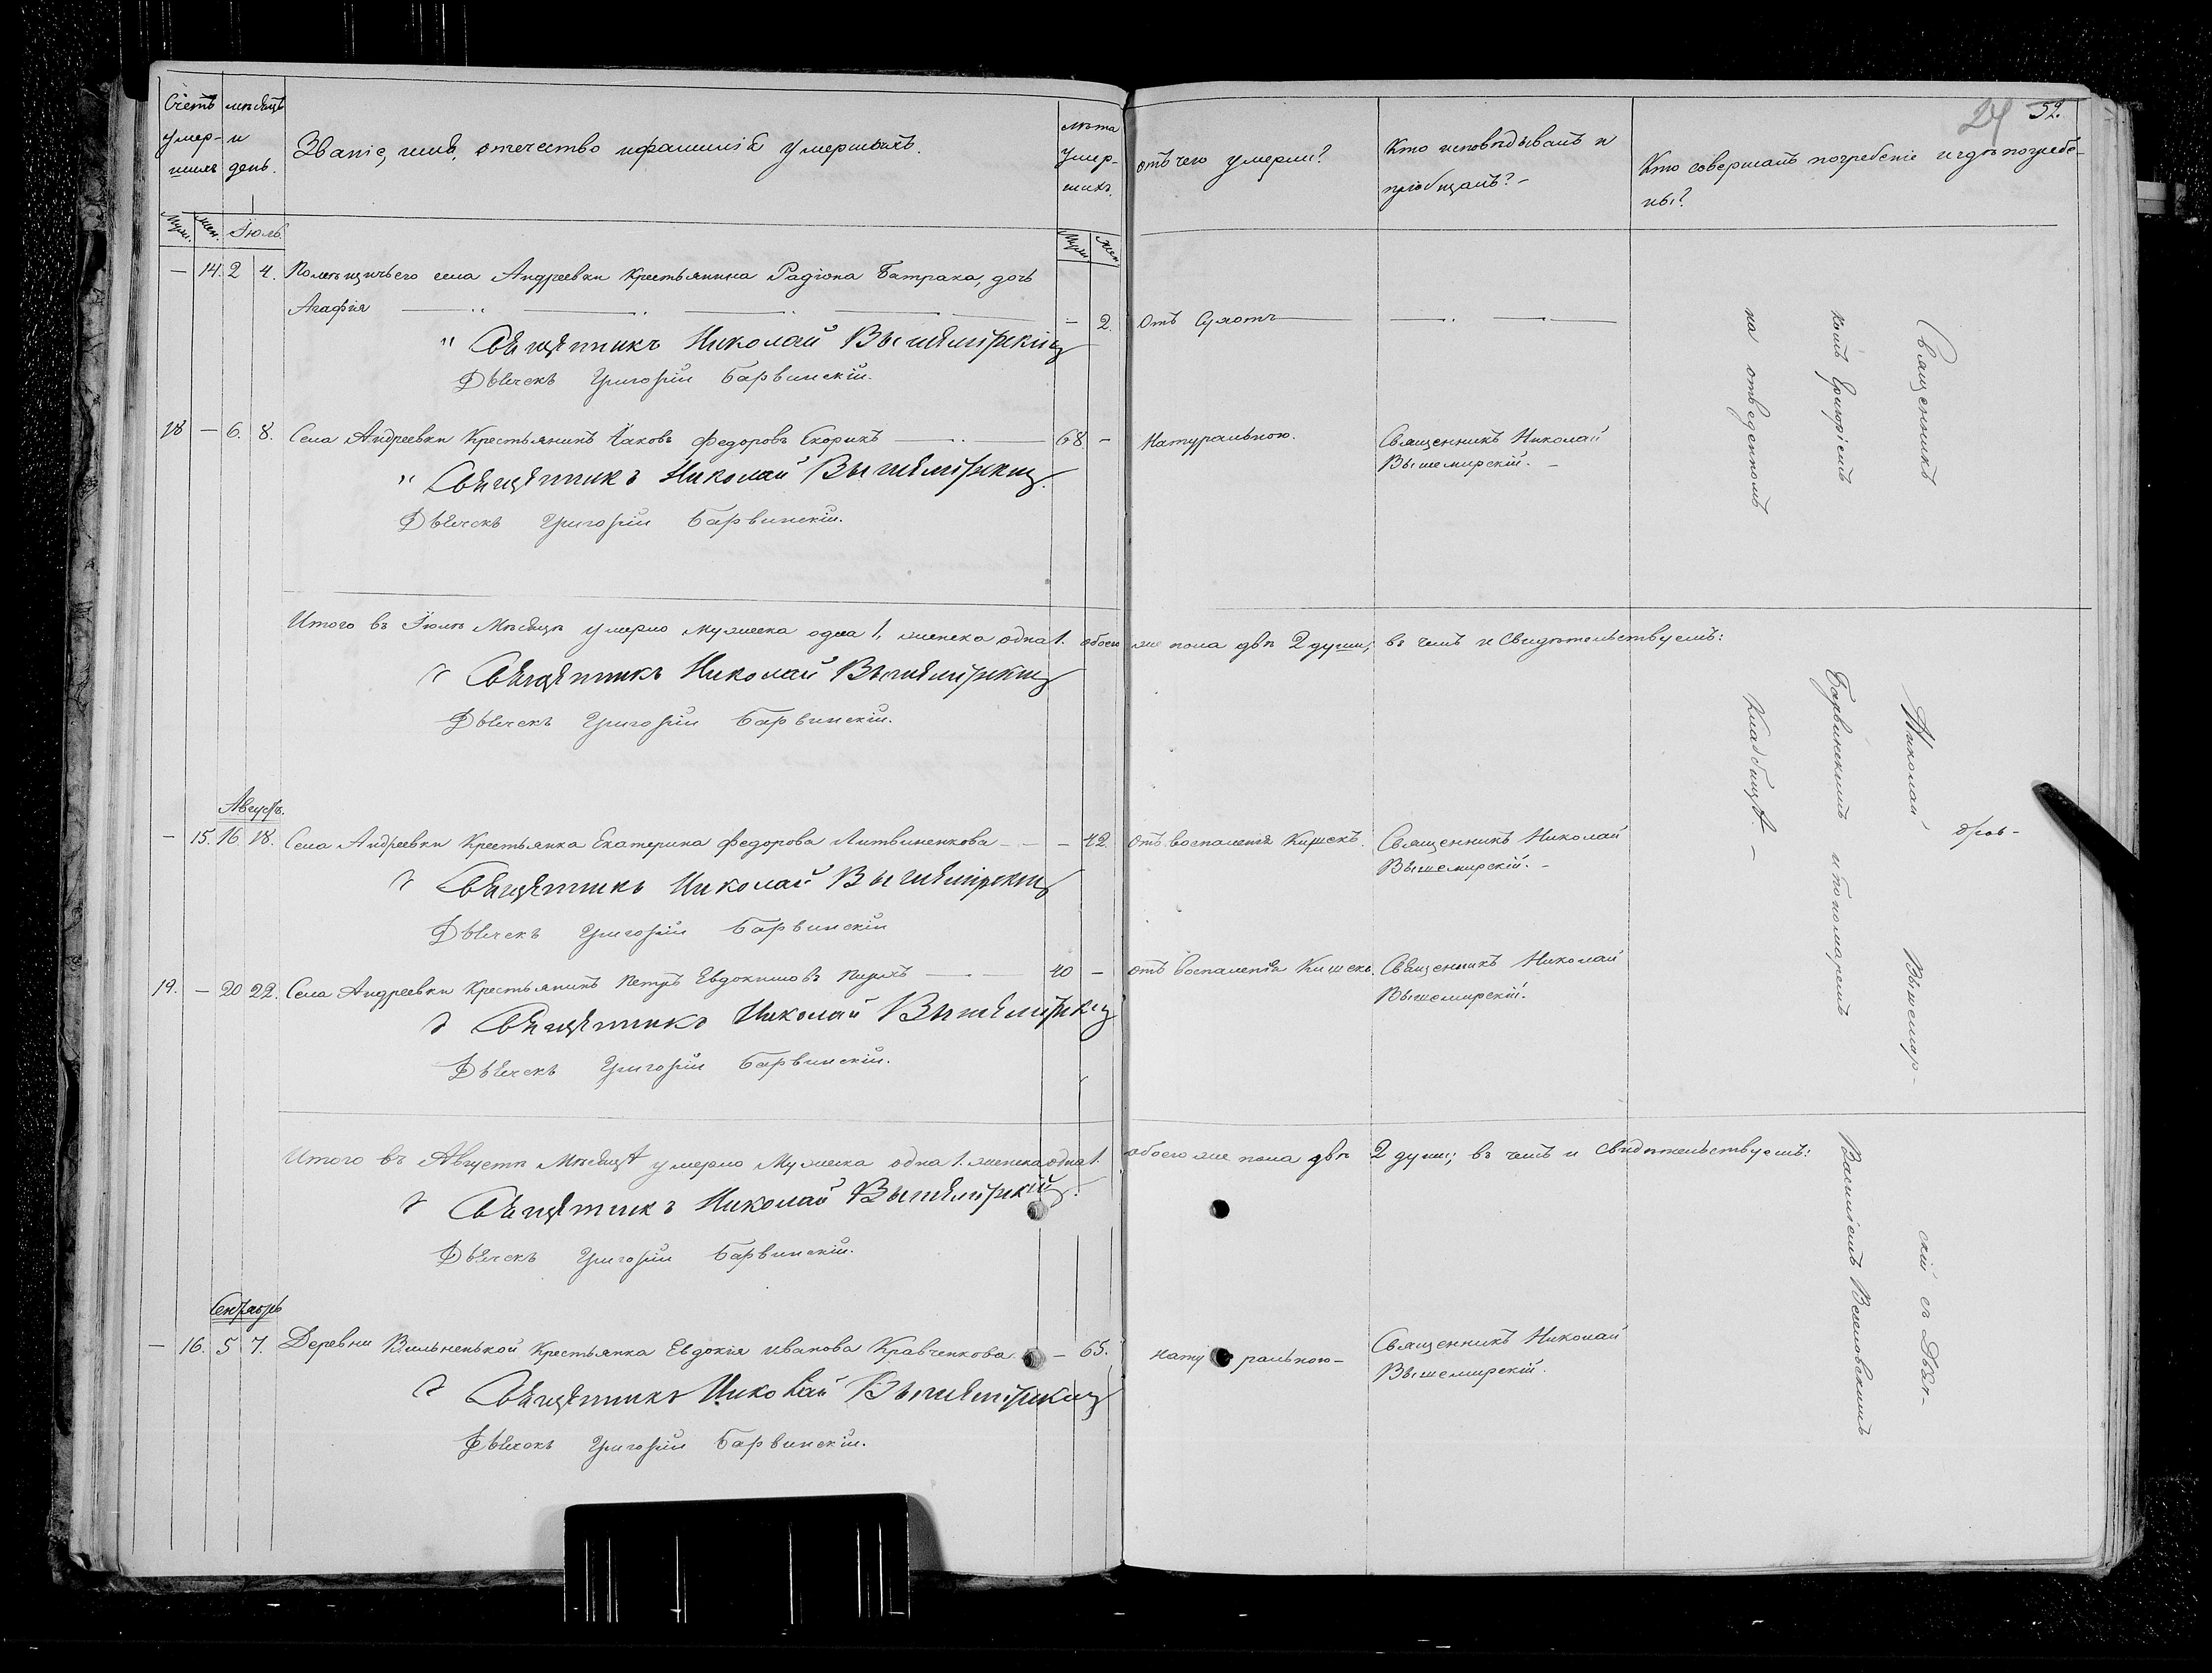 24 52.
Счетъ умер-шихъ
мѣсяцъ и день.
Званіе, имя, отечество и фамилія умершихъ.
Лѣта умер-шихъ.
отъ чего умерли?
Кто исповѣдывалъ и пріобщалъ? –
Кто совершалъ погребеніе и гдѣ погребе-ны?
Муж. Жен. Іюль. Муж. Жен.
— 14. 2 4. Помѣщичьего села Андреевки Крестьянина Радіона Батрака, дочь
Агафія — 2. Отъ Сухотъ
Священникъ Николай Вышемірскій
Дьячекъ Григорій Барвинскій.
18 — 6. 8. Села Андреевки Крестьянинъ Яковъ Федоровъ 68 — Натуральною. Священникъ Николай
Вышемирскій. –
Священникъ Николай Вышемірскій.
Дьячекъ Григорій Барвинскій.
Итого въ Іюлѣ Мѣсяцѣ умерло мужеска одна 1, женска одна 1. обоего же пола двѣ 2 души; въ чемъ и Свидѣтельствуемъ:
Священникъ Николай Вышемірскій
Дьячекъ Григорій Барвинскій.
Августъ.
— 15. 16. 18. Села Андреевки Крестьянка Екатерина Федорова Литвиненкова — 42 Отъ воспаленія Кишекъ. Священникъ Николай
Вышемирскій. –
Священникъ Николай Вышемірскій
Дьячекъ Григорій Барвинскій
19. — 20 22. Села Андреевки Крестьянинъ Петръ Евдокимовъ 40 — отъ воспаленія Кишекъ. Священникъ Николай
Вышемирскій.
Священникъ Николай Вышемірскій
Дьячекъ Григорій Барвинскій.
Итого въ Августѣ Мѣсяцѣ умерло Мужеска одна 1. женска одна 1. обоего же пола двѣ 2 души; въ чемъ и свидѣтельствуемъ:
Священникъ Николай Вышемірскій.
Дьячекъ Григорій Барвинскій.
Сентябрь
— 16. 5 7. Деревни Вильненькой Крестьянка Евдокія Иванова Кравченкова — 65. Натуральною – Священникъ Николай
Вышемирскій.
Священникъ Николай Вышемірскій
Дьячекъ Григорій Барвинскій.
Священникъ Николай Вышемир-скій съ Дьяч-
комъ Григоріемъ Барвинскимъ и пономаремъ
на отведенномъ Кладбищѣ. –